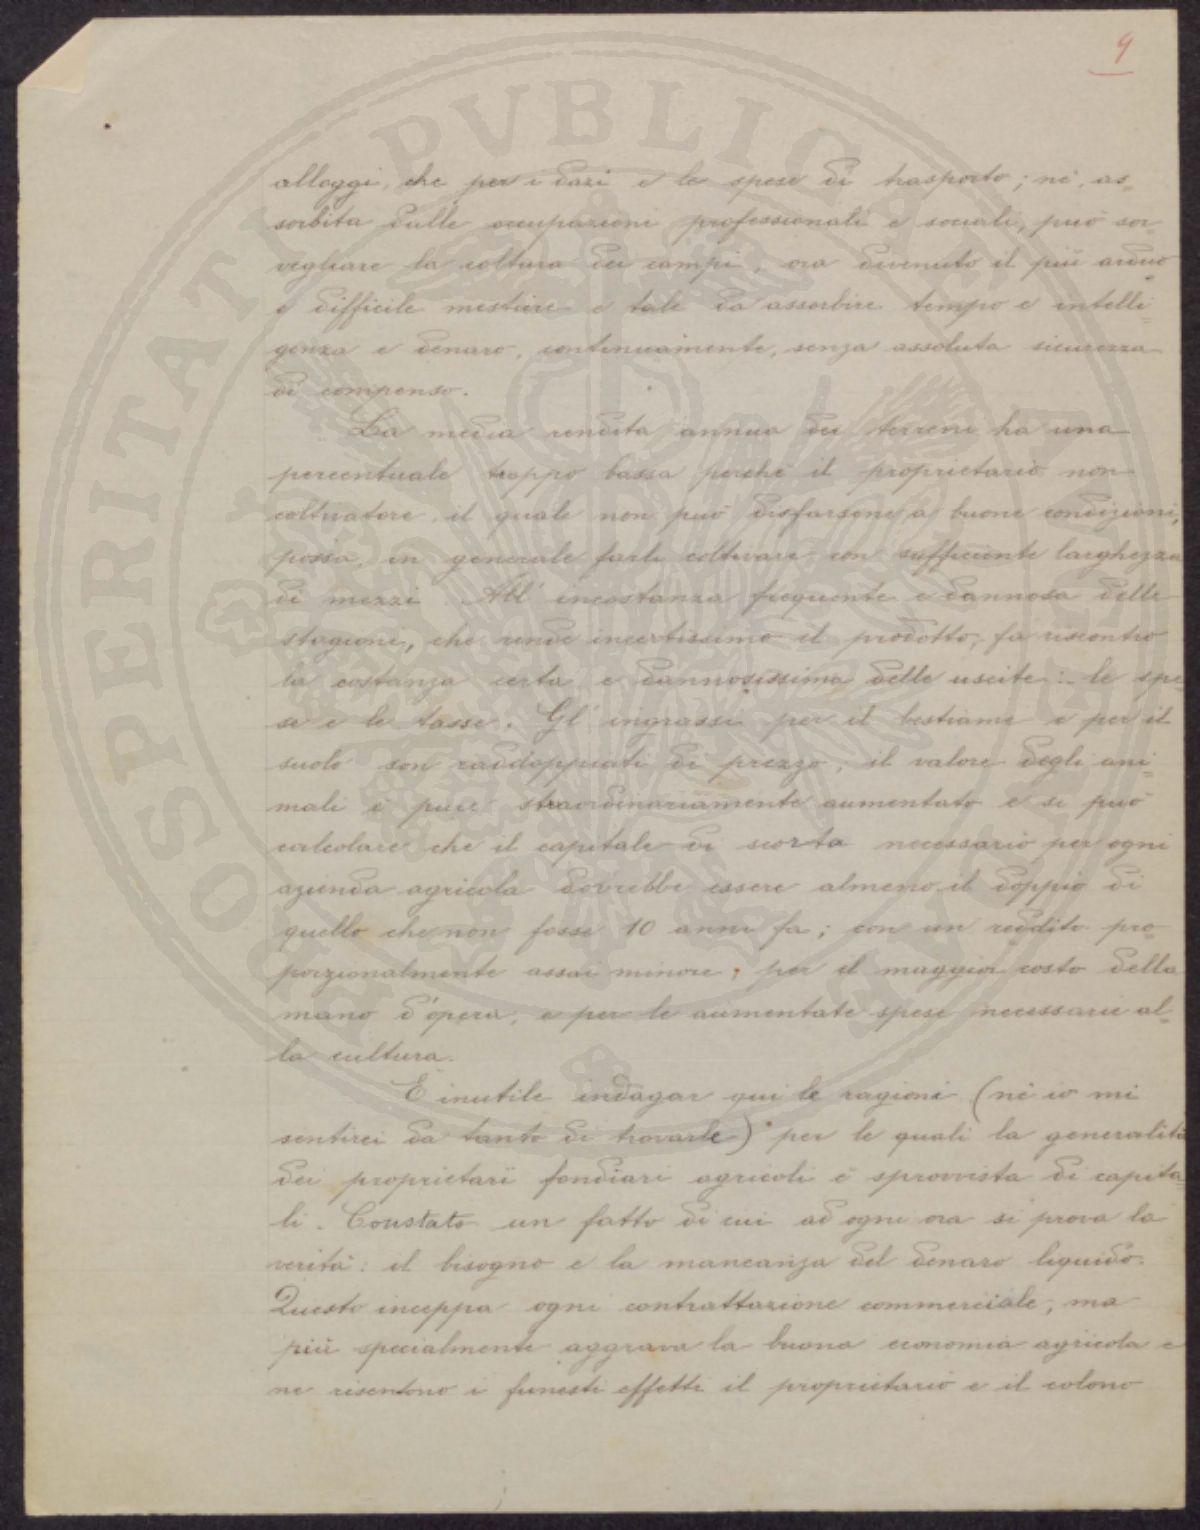 9
alloggi, che per i dazi e le spese di trasporto; nè, as=
sorbita dalle occupazioni professionali e sociali, può sor=
vegliare la coltura dei campi, ora divenuto il più arduo
e difficile mestiere e tale da assorbire tempo e intelli=
genza e denaro, continuamente, senza assoluta sicurezza
di compenso.
La media rendita annua dei terreni ha una
percentuale troppo bassa perchè il proprietario non
coltivatore, il quale non può disfarsene a buone condizioni,
possa, in generale farli coltivare con sufficiente larghezza
di mezzi. All'incostanza frequente e dannosa delle
stagioni, che rende incertissimo il prodotto, fa riscontro
la costanza certa e dannosissima delle uscite: le spe=
se e le tasse. Gl'ingrassi per il bestiame e per il
suolo son raddoppiati di prezzo; il valore degli ani=
mali è pure straordinariamente aumentato e si può
calcolare che il capitale di scorta necessario per ogni
azienda agricola dovrebbe essere almeno il doppio di
quello che non fosse 10 anni fa; con un reddito pro=
porzionalmente assai minore, per il maggior costo della
mano d'opera, e per le aumentate spese necessarie al=
la cultura.
È inutile indagar qui le ragioni (nè io mi
sentirei da tanto di trovarle) per le quali la generalità
dei proprietarii fondiari agricoli è sprovvista di capita=
li. Constato un fatto di cui ad ogni ora si prova la
verità: il bisogno e la mancanza del denaro liquido.
Questo inceppa ogni contrattazione commerciale, ma
più specialmente aggrava la buona economia agricola e
ne risentono i funesti effetti il proprietario e il colono
PROSPERITATI PVBLICAE